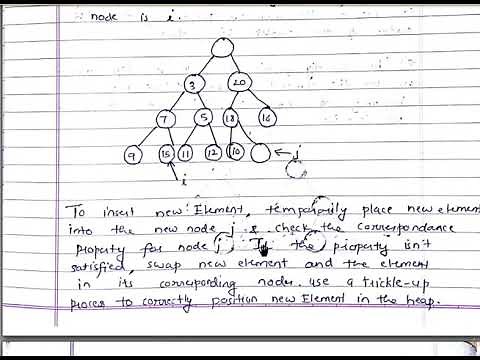 node is i.
3 20
7 5 18 16
9 15 11 12 10 j
i
To insert new Element, temporarily place new element
into the new node j & check the correspondance
property for node j. If the property isn't
satisfied, swap new element and the element
in its corresponding node. use a trickle-up
proces to correctly position new Element in the heap.